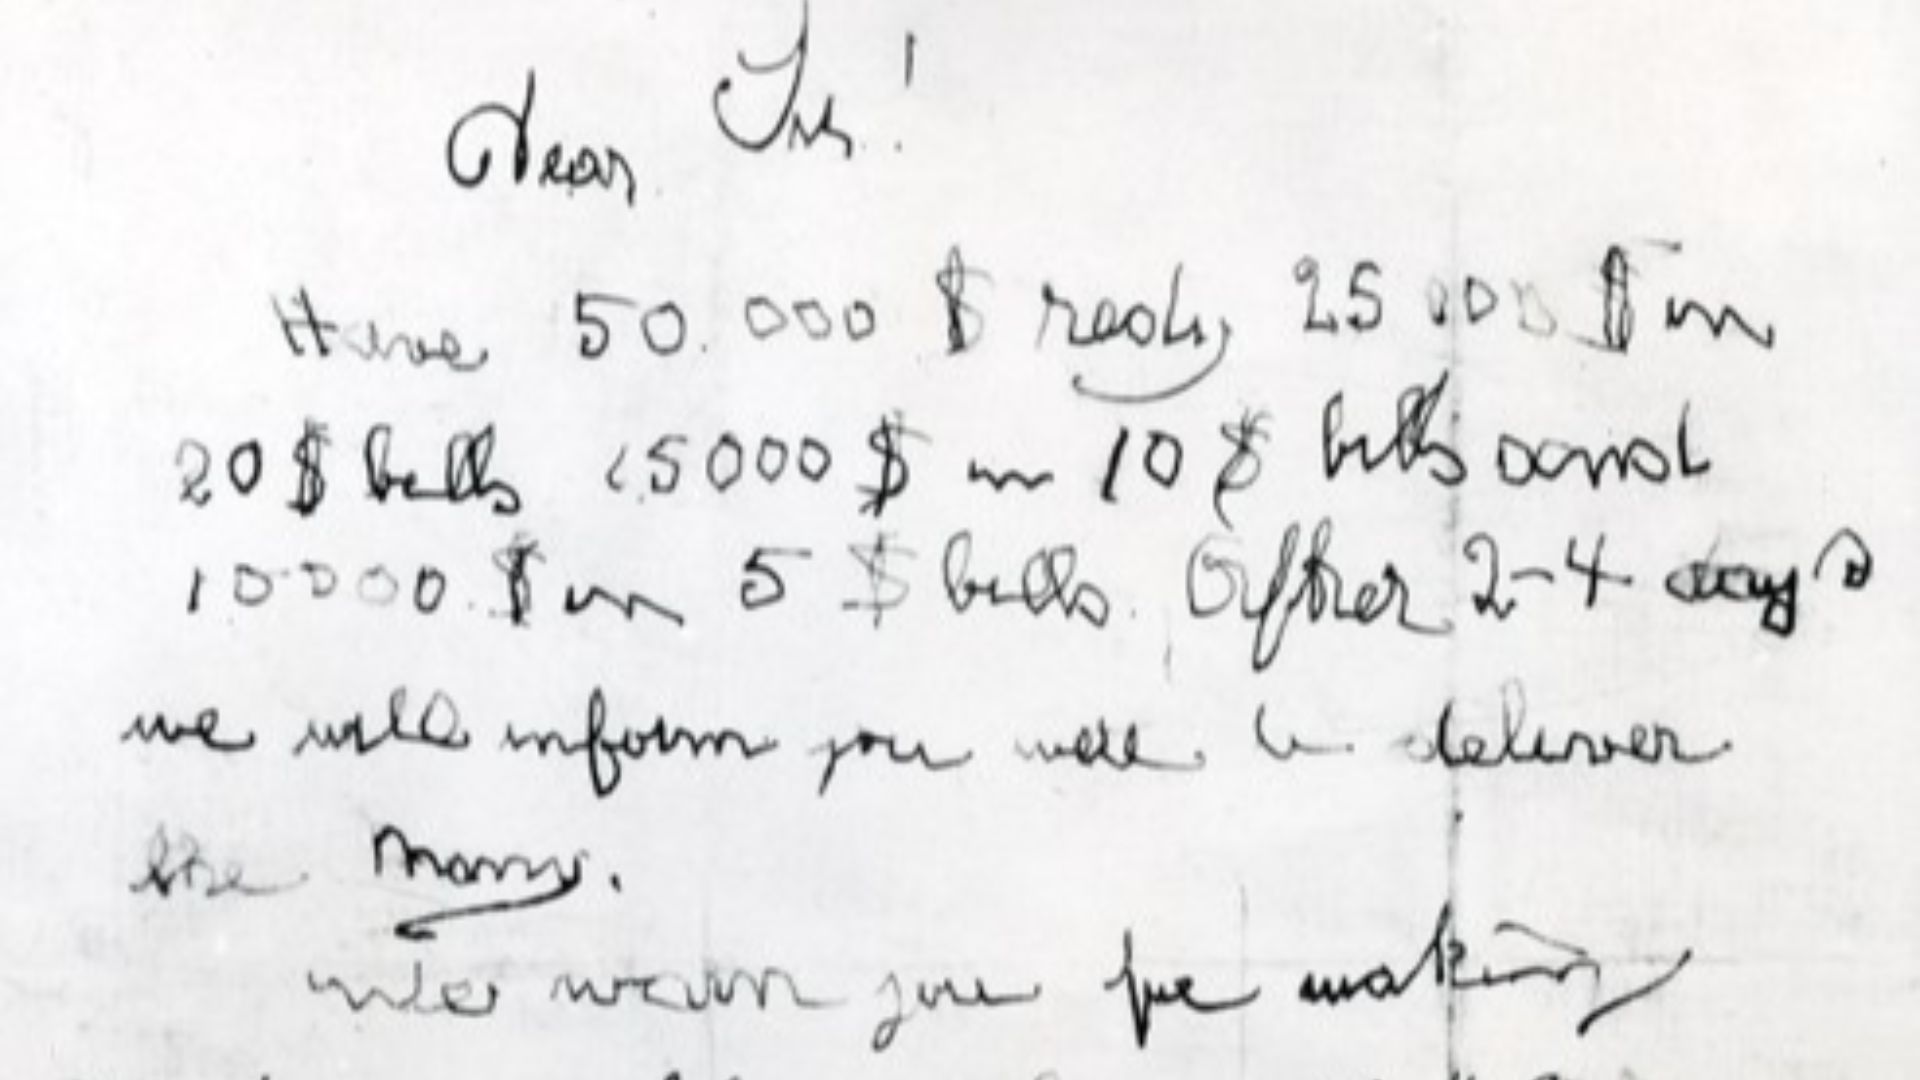 Dear Sir!
Have 50.000 $ redy 25000 $ in
20 $ bills 15000 $ in 10 $ bills and
10000 $ in 5 $ bills. After 2-4 days
we will inform you were to deliver
the Mony.
We warn you for making